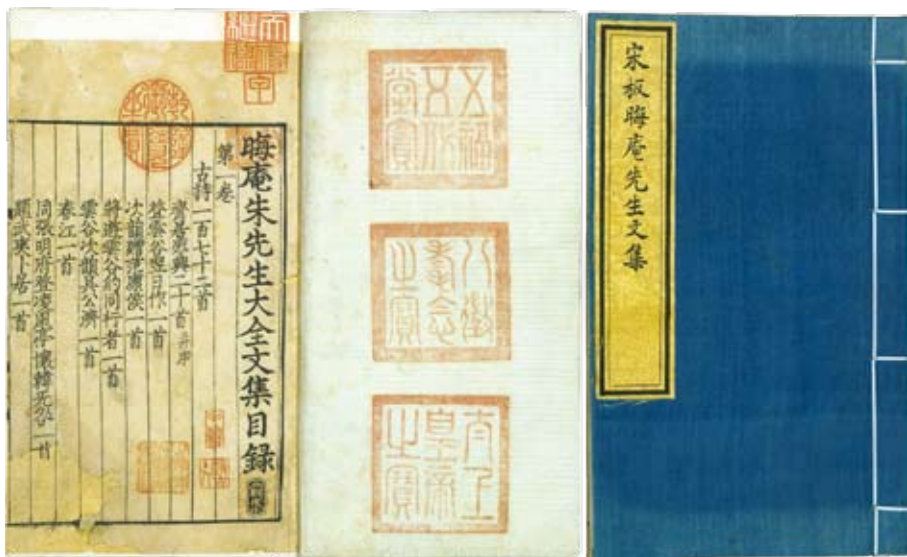 宋板晦庵先生文集
五福五代堂寶
八徵耄念之寶
太上皇帝之寶
天祿繼鑑
乾隆御覽之寶
晦庵朱先生大全文集目録
第一卷
古詩一百七十二首
齋居感興二十首并序
登雲谷翌日作一首
次韻贈一首
將遊雲谷約同行者一首
雲谷次韻其公濟一首
春江一首
同張明府登凌風亭懷韓无咎一首
題武夷卜居一首